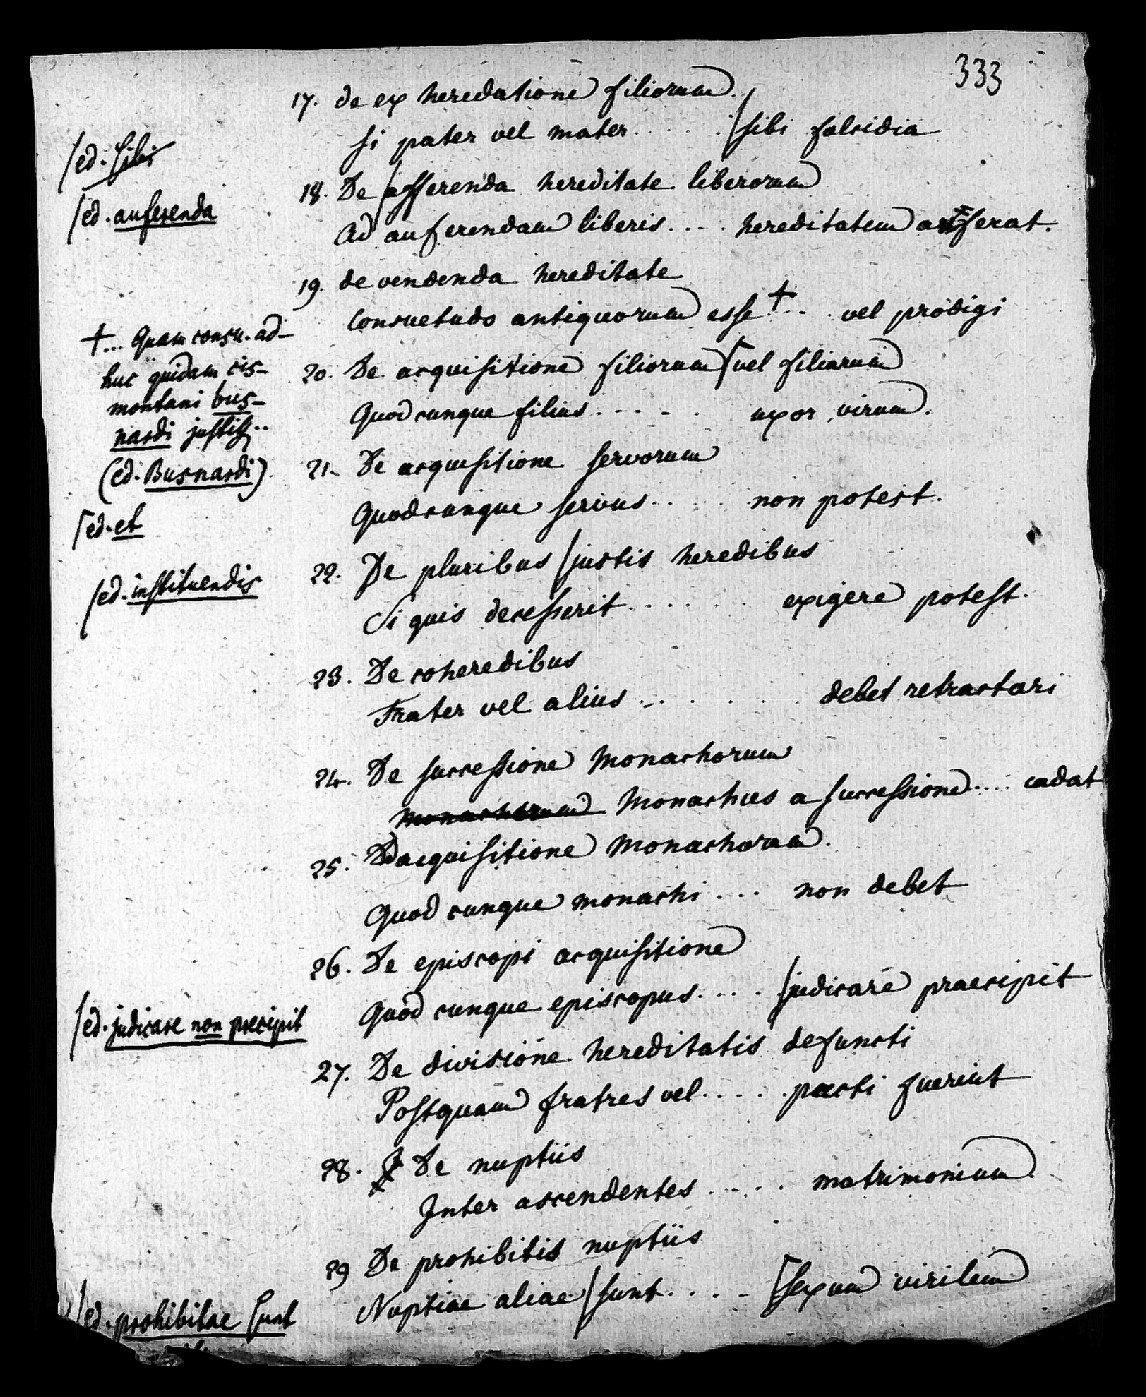 333
17. de ex heredatione filiorum.
Si pater vel mater...... sibi falcidia
/ed. sibi
18. De afferenda hereditate liberorum
/ed. auferenda
Ad auferendam liberis.... hereditatem auferat.
19. de vendenda hereditate
Consuetudo antiquorum esse +.. vel prodigi
+... Quam consu. ad-
huc quidam cis-
montani bus-
nardi justis..
(ed. Busnardi)
20. De acquisitione filiorum [vel filiarum
Quodcunque filius...... uxor virum.
21. De acquisitione servorum
Quodcunque servus..... non potest.
[ed. et
22. De pluribus /justis heredibus
/ed. instituendis
Si quis decesserit....... exigere potest.
23. De coheredibus
Frater vel alius....... debet retractari
24. De successione Monachorum
Monachorum Monachus a successione.... cadat
25. D acquisitione Monachorum.
Quod cunque monachi... non debet
26. De episcopi acquisitione
Quod cunque episcopus.... /judicare praecipit
/ed. judicare non precipit
27. De divisione hereditatis defuncti
Postquam fratres vel.... pacti fuerint
28. De nuptiis
Inter ascendentes..... matrimonium
29 De prohibitis nuptiis
Nuptiae aliae /sunt.... [sexum virilem
/ed. prohibitae sunt